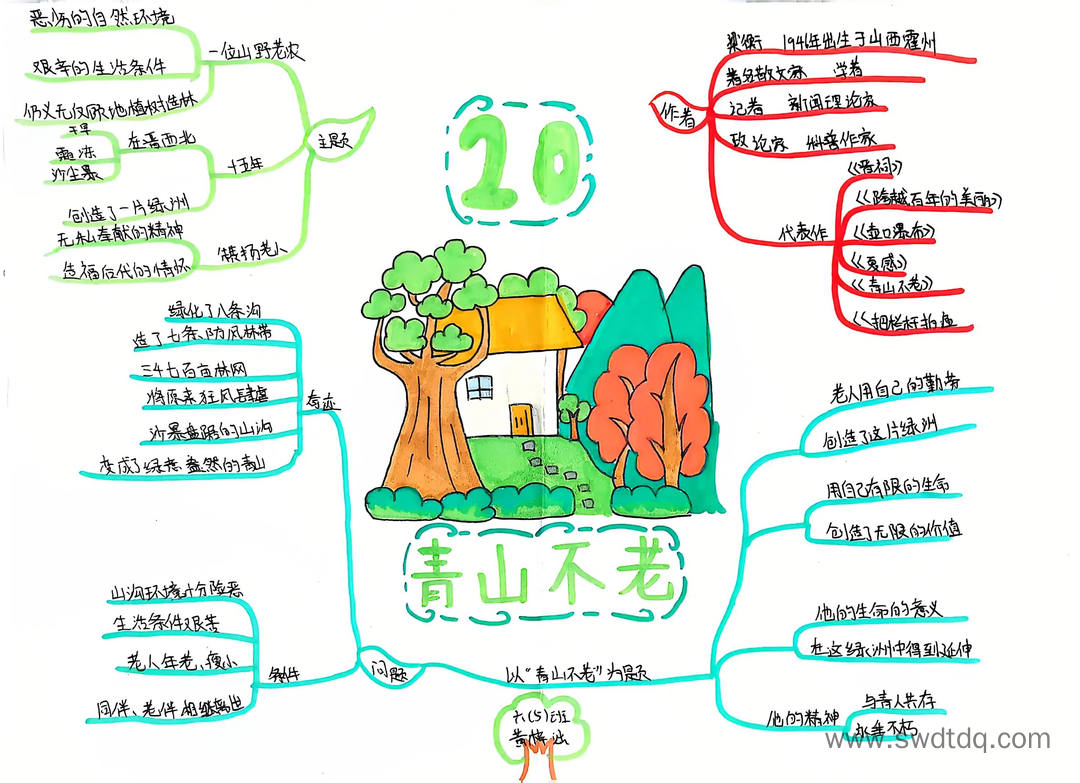 20
青山不老
作者
梁衡 1946年出生于山西霍州
著名散文家 学者
记者 新闻理论家
政论家 科普作家
代表作
《晋祠》
《跨越百年的美丽》
《壶口瀑布》
《夏感》
《青山不老》
《把栏杆拍遍
主题
一位山野老农
恶劣的自然环境
艰辛的生活条件
仍义无反顾地植树造林
十五年
在晋西北
干旱
霜冻
沙尘暴
创造了一片绿洲
老小
无私奉献的精神
造福后代的情怀
问题
奇迹
绿化了八条沟
造了七条防风林带
三千七百亩林网
将原来狂风肆虐
沙暴盘踞的山沟
变成了绿意盎然的青山
条件
山沟环境十分险恶
生活条件艰苦
老人年老、瘦小
同伴、老伴相继离世
以“青山不老”为题
老人用自己的勤劳
创造了这片绿洲
用自己有限的生命
创造了无限的价值
他的生命的意义
在这绿洲中得到延伸
他的精神
与青人共存
永垂不朽
六(5)班
www.swdtdq.com